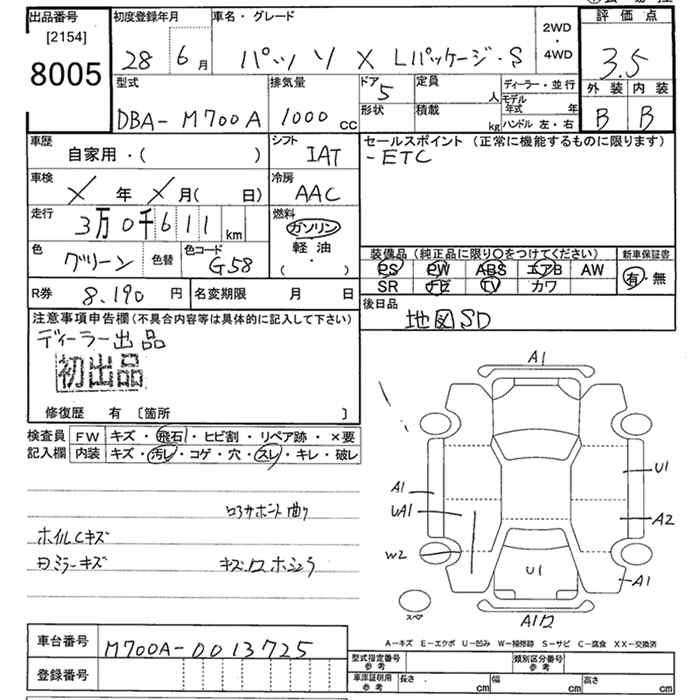 出品番号
[2154]
8005
初度登録年月
28 6 月
車名・グレード
パッソ X Lパッケージ・S
2WD
・
4WD
評価点
3.5
外装 内装
B B
型式
DBA-M700A
排気量
1000 cc
ドア
5
形状
定員
人
積載
kg
ディーラー・並行
モデル年式 年
ハンドル 左・右
車歴
自家用・( )
シフト
IAT
車検
X 年 X 月( 日)
冷房
AAC
走行
3万0千611 km
燃料
ガソリン
軽油
( ・ )
色
グリーン
色替
色コード
G58
R券 8.190 円
名変期限 月 日
セールスポイント (正常に機能するものに限ります)
-ETC
装備品 (純正品に限り○をつけてください)
PS PW ABS エアB AW
SR ナビ TV カワ
新車保証書
有・無
後日品
地図SD
注意事項申告欄 (不具合内容等は具体的に記入して下さい)
ディーラー出品
初出品
修復歴 有 [箇所 ]
検査員記入欄
FW キズ・飛石・ヒビ割・リペア跡・×要
内装 キズ・汚レ・コゲ・穴・スレ・キレ・破レ
ホイルCキズ
ミラーキズ
A1
U1
A2
A1
A1
UA1
W2
U1
A1
スペア
A-キズ E-エクボ U-凹み W-補修跡 S-サビ C-腐食 XX-交換済
車台番号 M700A-0013725
登録番号
型式指定番号 参考
類別区分番号 参考
車庫証明用 参考
長さ cm
幅 cm
高さ cm